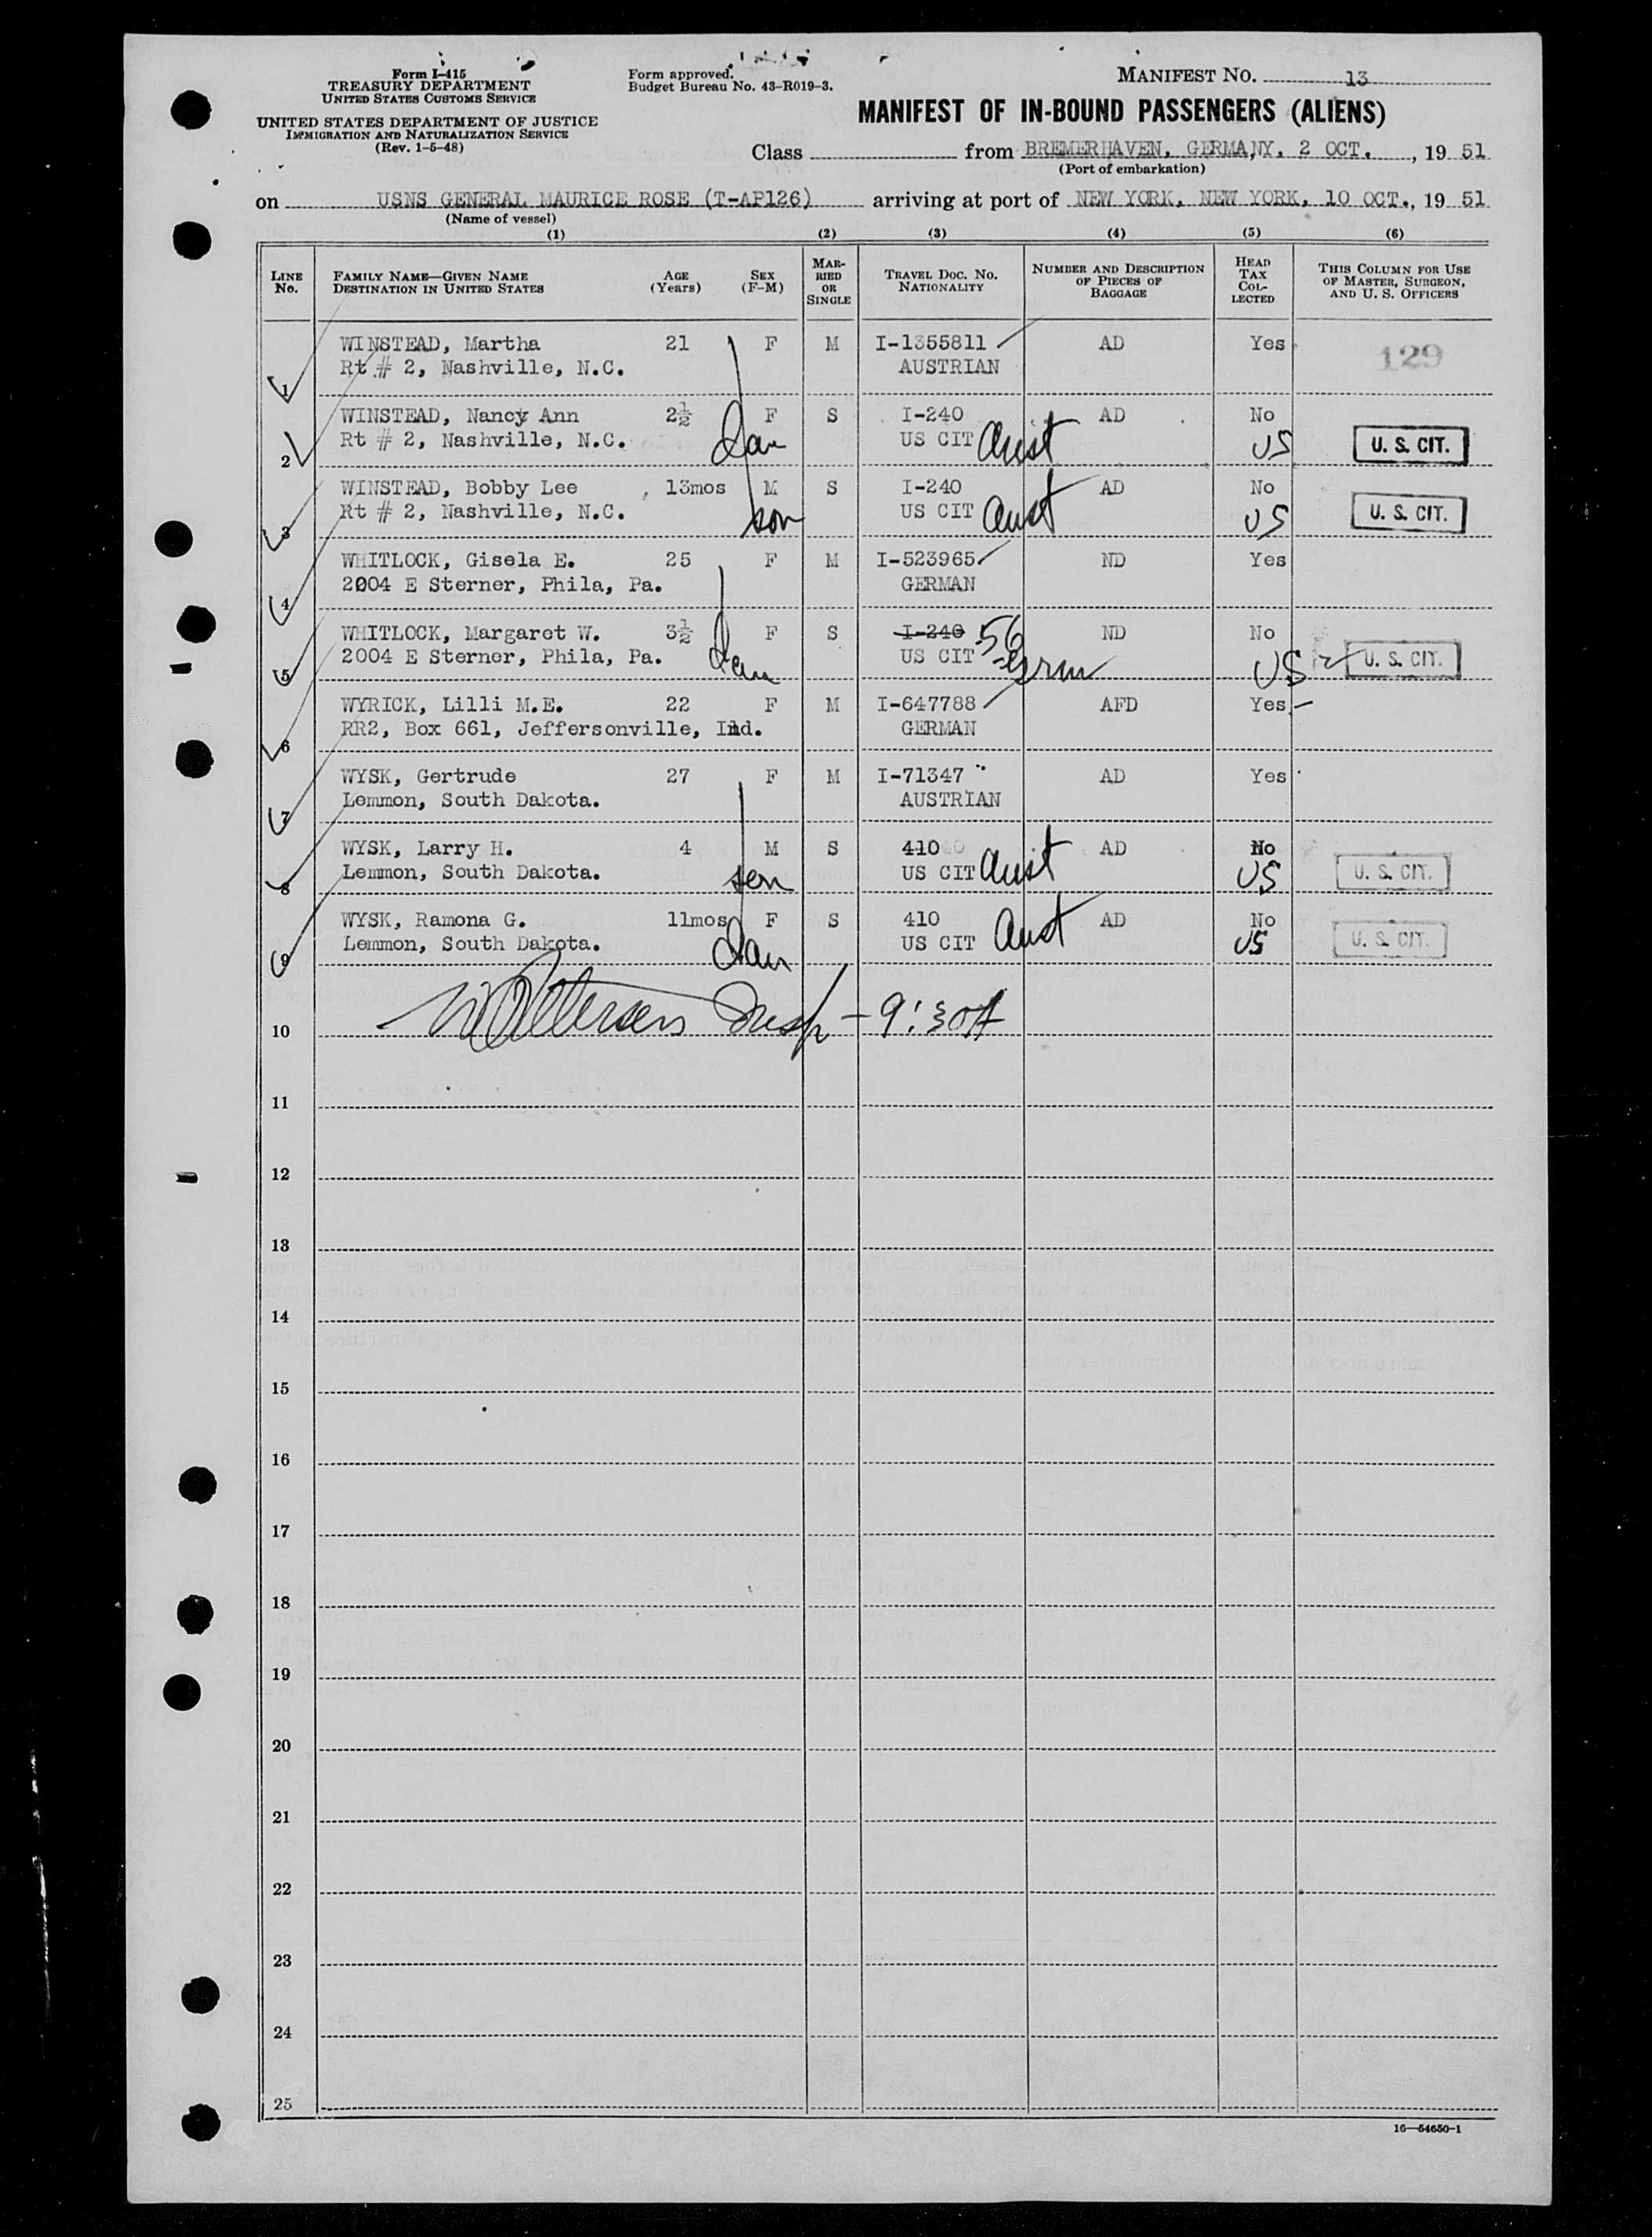 Form I-415
TREASURY DEPARTMENT
UNITED STATES CUSTOMS SERVICE
UNITED STATES DEPARTMENT OF JUSTICE
IMMIGRATION AND NATURALIZATION SERVICE
(Rev. 1-5-48)
Form approved.
Budget Bureau No. 43-R019-3.
MANIFEST NO. 13
MANIFEST OF IN-BOUND PASSENGERS (ALIENS)
Class from BREMERHAVEN, GERMANY, 2 OCT. , 19 51
(Port of embarkation)
on USNS GENERAL MAURICE ROSE (T-AP126) arriving at port of NEW YORK, NEW YORK, 10 OCT., 19 51
(Name of vessel)
(1) (2) (3) (4) (5) (6)
LINE No. FAMILY NAME—GIVEN NAME DESTINATION IN UNITED STATES AGE (Years) SEX (F-M) MARRIED OR SINGLE TRAVEL DOC. NO. NATIONALITY NUMBER AND DESCRIPTION OF PIECES OF BAGGAGE HEAD TAX COLLECTED THIS COLUMN FOR USE OF MASTER, SURGEON, AND U. S. OFFICERS
WINSTEAD, Martha 21 F M I-1355811 AD Yes 129
1 Rt # 2, Nashville, N.C. AUSTRIAN
WINSTEAD, Nancy Ann 2½ F S I-240 AD No
2 Rt # 2, Nashville, N.C. dau US CIT Aust US U. S. CIT.
WINSTEAD, Bobby Lee 13mos M S I-240 AD No
3 Rt # 2, Nashville, N.C. son US CIT Aust US U. S. CIT.
WHITLOCK, Gisela E. 25 F M I-523965 ND Yes
4 2004 E Sterner, Phila, Pa. GERMAN
WHITLOCK, Margaret W. 3½ F S I-240 56 ND No
5 2004 E Sterner, Phila, Pa. dau US CIT Grm US U. S. CIT.
WYRICK, Lilli M.E. 22 F M I-647788 AFD Yes
6 RR2, Box 661, Jeffersonville, Ind. GERMAN
WYSK, Gertrude 27 F M I-71347 AD Yes
7 Lemmon, South Dakota. AUSTRIAN
WYSK, Larry H. 4 M S 410 AD No
8 Lemmon, South Dakota. son US CIT Aust US U. S. CIT.
WYSK, Ramona G. 11mos F S 410 AD No
9 Lemmon, South Dakota. dau US CIT Aust US U. S. CIT.
10 Insp - 9:30A
11
12
13
14
15
16
17
18
19
20
21
22
23
24
25
16—54650-1